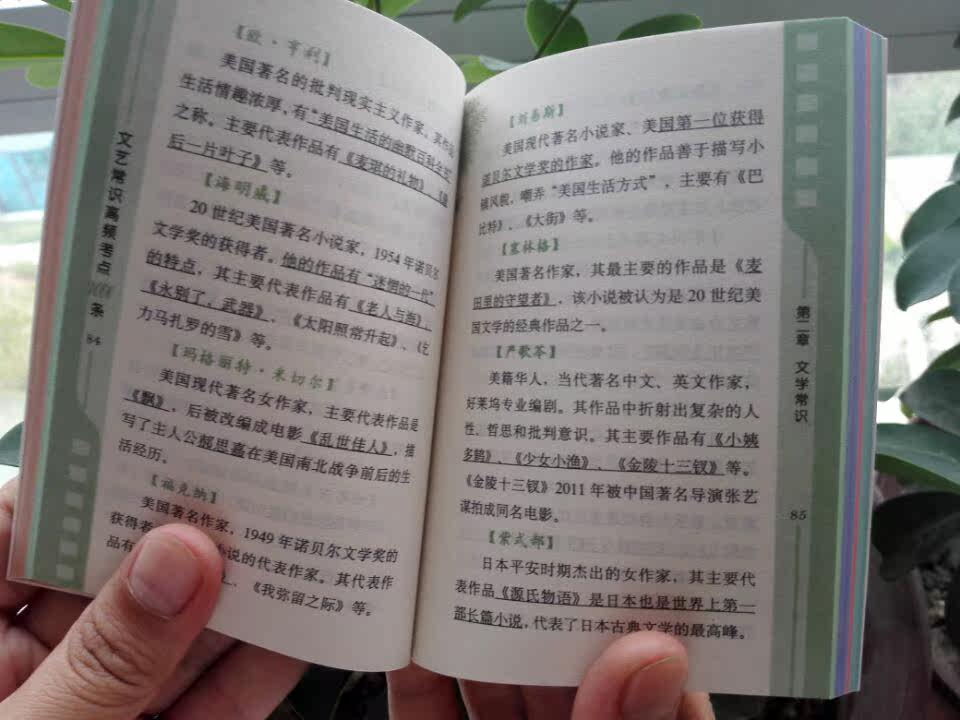 【欧·亨利】
美国著名的批判现实主义作家，其作品
生活情趣浓厚，有“美国生活的幽默百科全书”
之称。主要代表作品有《麦琪的礼物》《最
后一片叶子》等。
【海明威】
20世纪美国著名小说家，1954年诺贝尔
文学奖的获得者。他的作品有“迷惘的一代”
的特点，其主要代表作品有《老人与海》、
《永别了，武器》、《太阳照常升起》、《乞
力马扎罗的雪》等。
【玛格丽特·米切尔】
美国现代著名女作家，主要代表作品是
《飘》，后被改编成电影《乱世佳人》，描
写了主人公郝思嘉在美国南北战争前后的生
活经历。
【福克纳】
美国著名作家，1949年诺贝尔文学奖的
获得者 小说的代表作家。其代表作
品有 、《我弥留之际》等。
文艺常识高频考点 条
84
【刘易斯】
美国现代著名小说家、美国第一位获得
诺贝尔文学奖的作家。他的作品善于描写小
镇风貌，嘲弄“美国生活方式”，主要有《巴
比特》、《大街》等。
【塞林格】
美国著名作家，其最主要的作品是《麦
田里的守望者》，该小说被认为是20世纪美
国文学的经典作品之一。
【严歌苓】
美籍华人，当代著名中文、英文作家，
好莱坞专业编剧。其作品中折射出复杂的人
性、哲思和批判意识。其主要作品有《小姨
多鹤》、《少女小渔》、《金陵十三钗》等。
《金陵十三钗》2011年被中国著名导演张艺
谋拍成同名电影。
【紫式部】
日本平安时期杰出的女作家，其主要代
表作品《源氏物语》是日本也是世界上第一
部长篇小说，代表了日本古典文学的最高峰。
第二章 文学常识
85